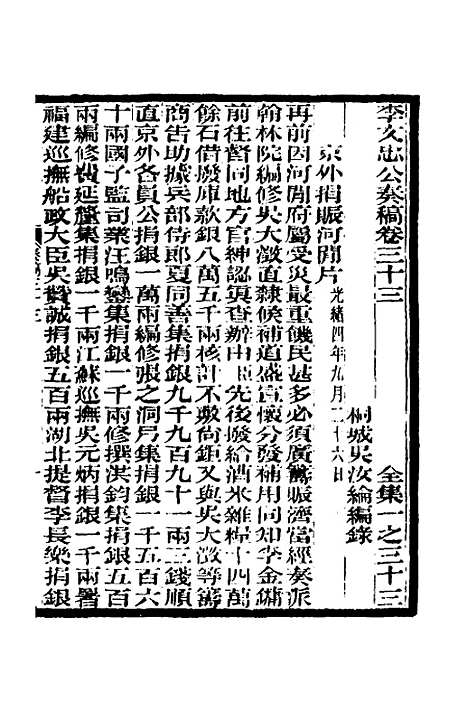 李文忠公奏稿卷三十三
全集一之三十三
桐城吳汝綸編錄
京外捐賑河間片 光緒四年九月二十六日
再前因河間府屬受災最重饑民甚多必須廣籌賑濟當經奏派
翰林院編修吳大澂直隸候補道盛宣懷分發補用同知李金鏞
前往督同地方官紳認眞查辦由臣先後撥給漕米雜糧十四萬
餘石借撥庫款銀八萬五千兩核計不敷尙鉅又與吳大澂等籌
商吿助據兵部侍郎夏同善集捐銀九千九百九十一兩三錢順
直京外各員公捐銀一萬兩編修張之洞另集捐銀一千五百六
十兩國子監司業汪鳴鑾集捐銀一千兩修撰洪鈞集捐銀五百
兩編修費延釐集捐銀一千兩江蘇巡撫吳元炳捐銀一千兩署
福建巡撫船政大臣吳贊誠捐銀五百兩湖北提督李長樂捐銀